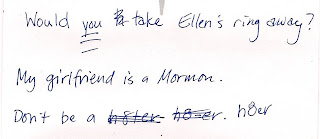 Would you take Ellen's ring away?
My girlfriend is a Mormon.
Don't be a h8ter h8er. h8er